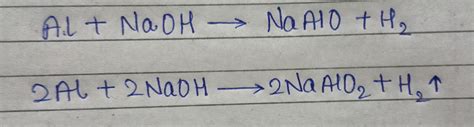 Al + NaOH → NaAlO + H₂
2Al + 2NaOH → 2NaAlO₂ + H₂↑